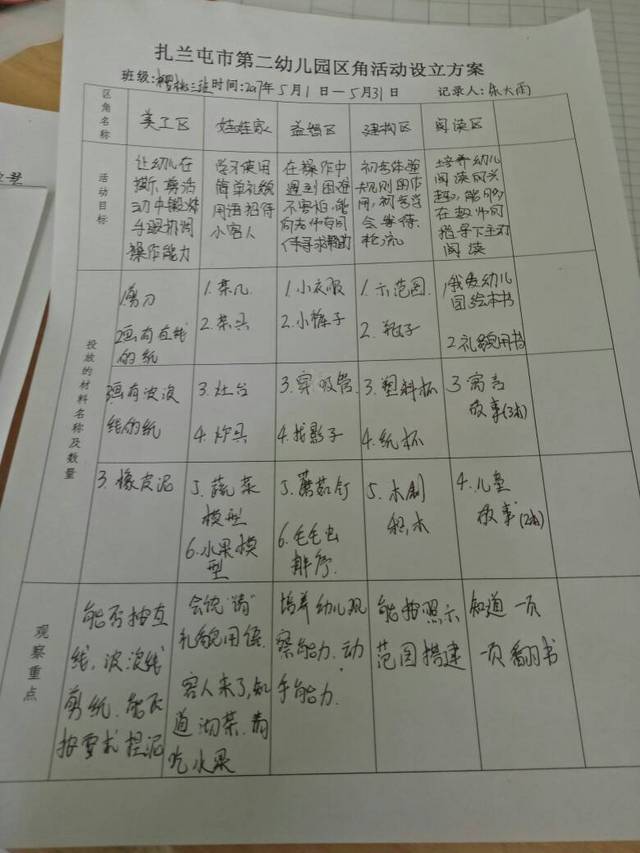 扎兰屯市第二幼儿园区角活动设立方案
班级:樱桃三班时间:2017年5月1日—5月31日 记录人:
区角名称
美工区 娃娃家 益智区 建构区 阅读区
活动目标
让幼儿在
撕、剪活
动中锻炼
手眼协调
操作能力
学习使用
简单礼貌
用语招待
小客人
在操作中
遇到困难
不害怕,能
向老师有同
伴寻求帮助
初步体验
规则的作
用,初步学
会等待、
轮流
培养幼儿
阅读的兴
趣,能够
在教师的
指导下主动
阅读
投放的材料名称及数量
1剪刀
2画有直线
的纸
1.茶几
2.茶具
1.小衣服
2.小裤子
1.示范图
2.瓶子
1我爱幼儿
园绘本书
2.礼貌用书
3画有波浪
线的纸
3.灶台
4.炊具
3.穿吸管
4.找影子
3.塑料杯
4.纸杯
3寓言
故事(3本)
3.橡皮泥
5.蔬菜
模型
6.水果模
型
5.蘑菇钉
6.毛毛虫
排序
5.木制
积木
4.儿童
故事(2本)
观察重点
能否按直
线,波浪线
剪纸,能否
按要求捏泥
会说“请”
礼貌用语
客人来了,知
道沏茶、请
吃水果
培养幼儿观
察能力、动
手能力
能按照示
范图搭建
知道一页
一页翻书